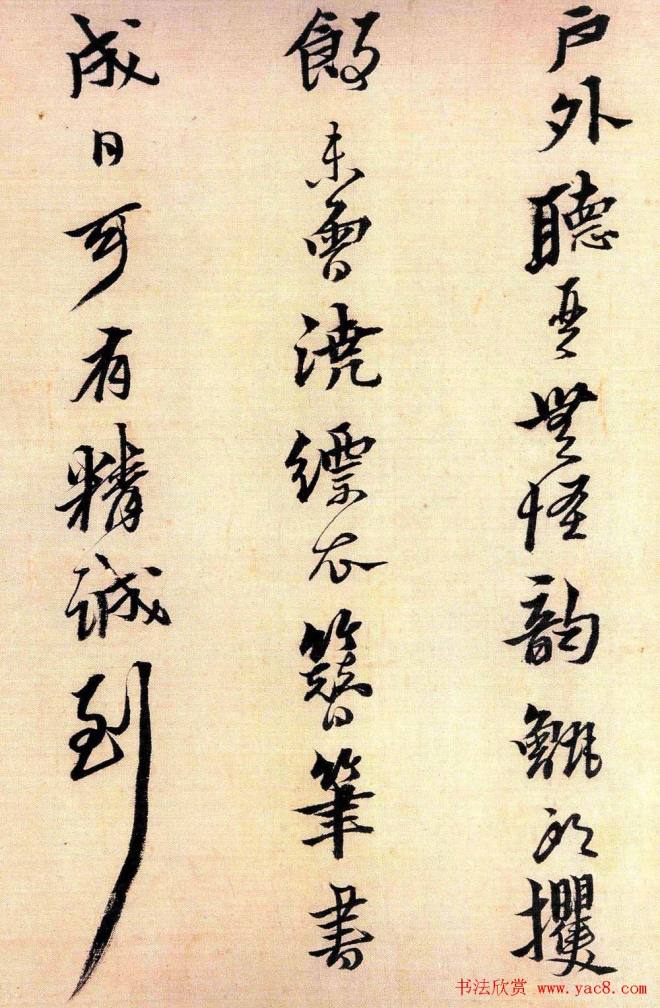 户外聽無怪韻攫
未曾澆縹衣簪筆書
成日可有精誠到
书法欣赏 www.yac8.com